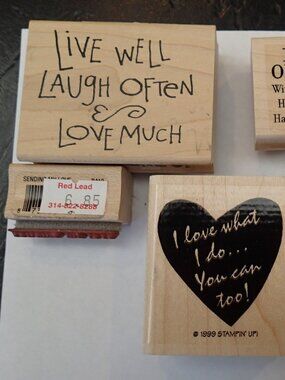 LIVE WELL
LAUGH OFTEN
&
LOVE MUCH
O
Wi
H
Ha
Red Lead
6.85
314-822-8288
I love what
I do...
You can
too!
© 1999 STAMPIN' UP!